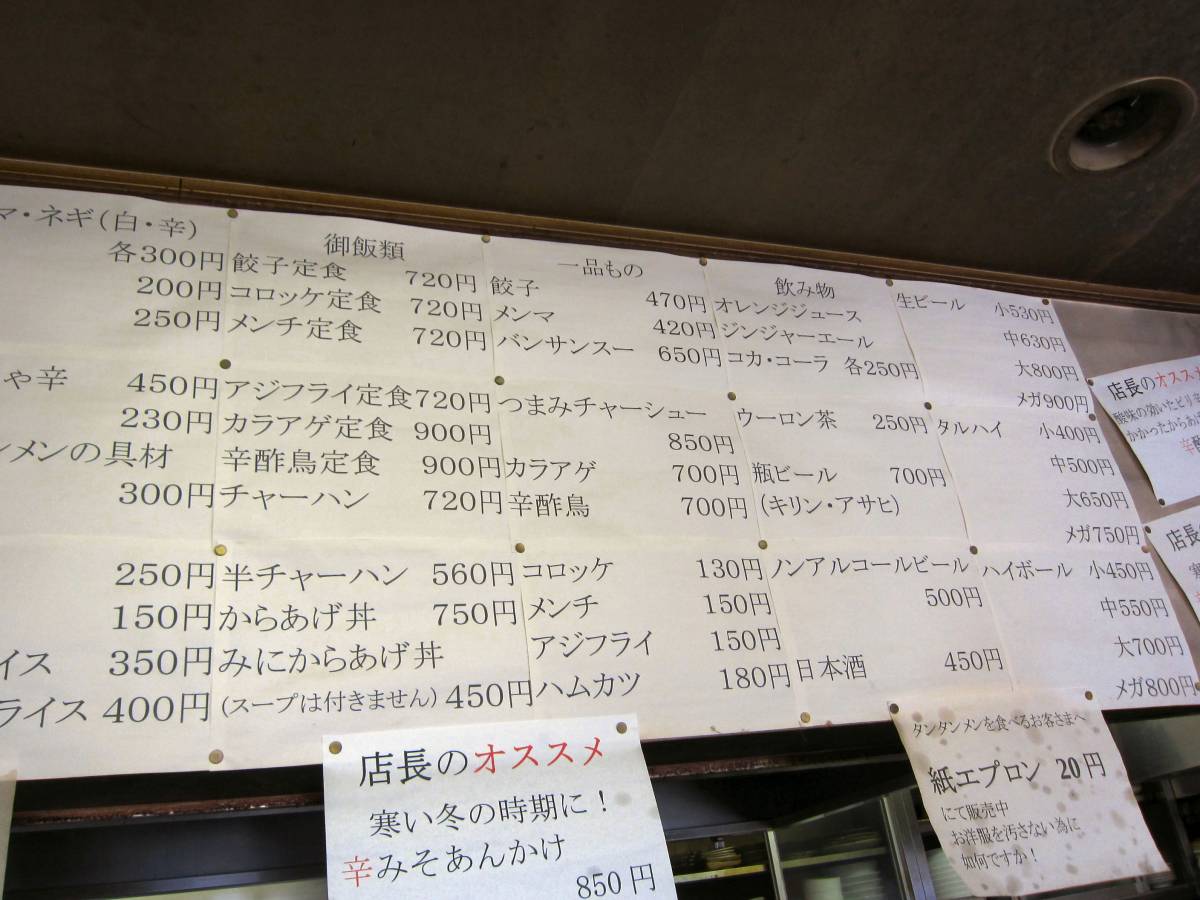 マ・ネギ(白・辛)
各300円
200円
250円
ゃ辛 450円
230円
ンメンの具材
300円
250円
150円
イス 350円
ライス 400円
御飯類
餃子定食 720円
コロッケ定食 720円
メンチ定食 720円
アジフライ定食 720円
カラアゲ定食 900円
辛酢鳥定食 900円
チャーハン 720円
半チャーハン 560円
からあげ丼 750円
みにからあげ丼
(スープは付きません) 450円
一品もの
餃子 470円
メンマ 420円
バンサンスー 650円
つまみチャーシュー
850円
カラアゲ 700円
辛酢鳥 700円
コロッケ 130円
メンチ 150円
アジフライ 150円
ハムカツ 180円
飲み物
オレンジジュース
ジンジャーエール
コカ・コーラ 各250円
ウーロン茶 250円
瓶ビール 700円
(キリン・アサヒ)
ノンアルコールビール
500円
日本酒 450円
生ビール 小530円
中630円
大800円
メガ900円
タルハイ 小400円
中500円
大650円
メガ750円
ハイボール 小450円
中550円
大700円
メガ800円
店長のオススメ
酸味の効いたピリ辛
かかったからあ
辛酢
店長
寒
店長のオススメ
寒い冬の時期に!
辛みそあんかけ
850円
タンタンメンを食べるお客さまへ
紙エプロン 20円
にて販売中
お洋服を汚さない為に
如何ですか!